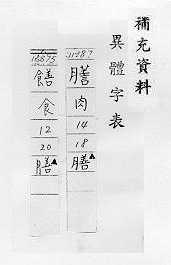 補充資料
異體字表
膳
肉
14
18
膳
饍
食
12
20
膳